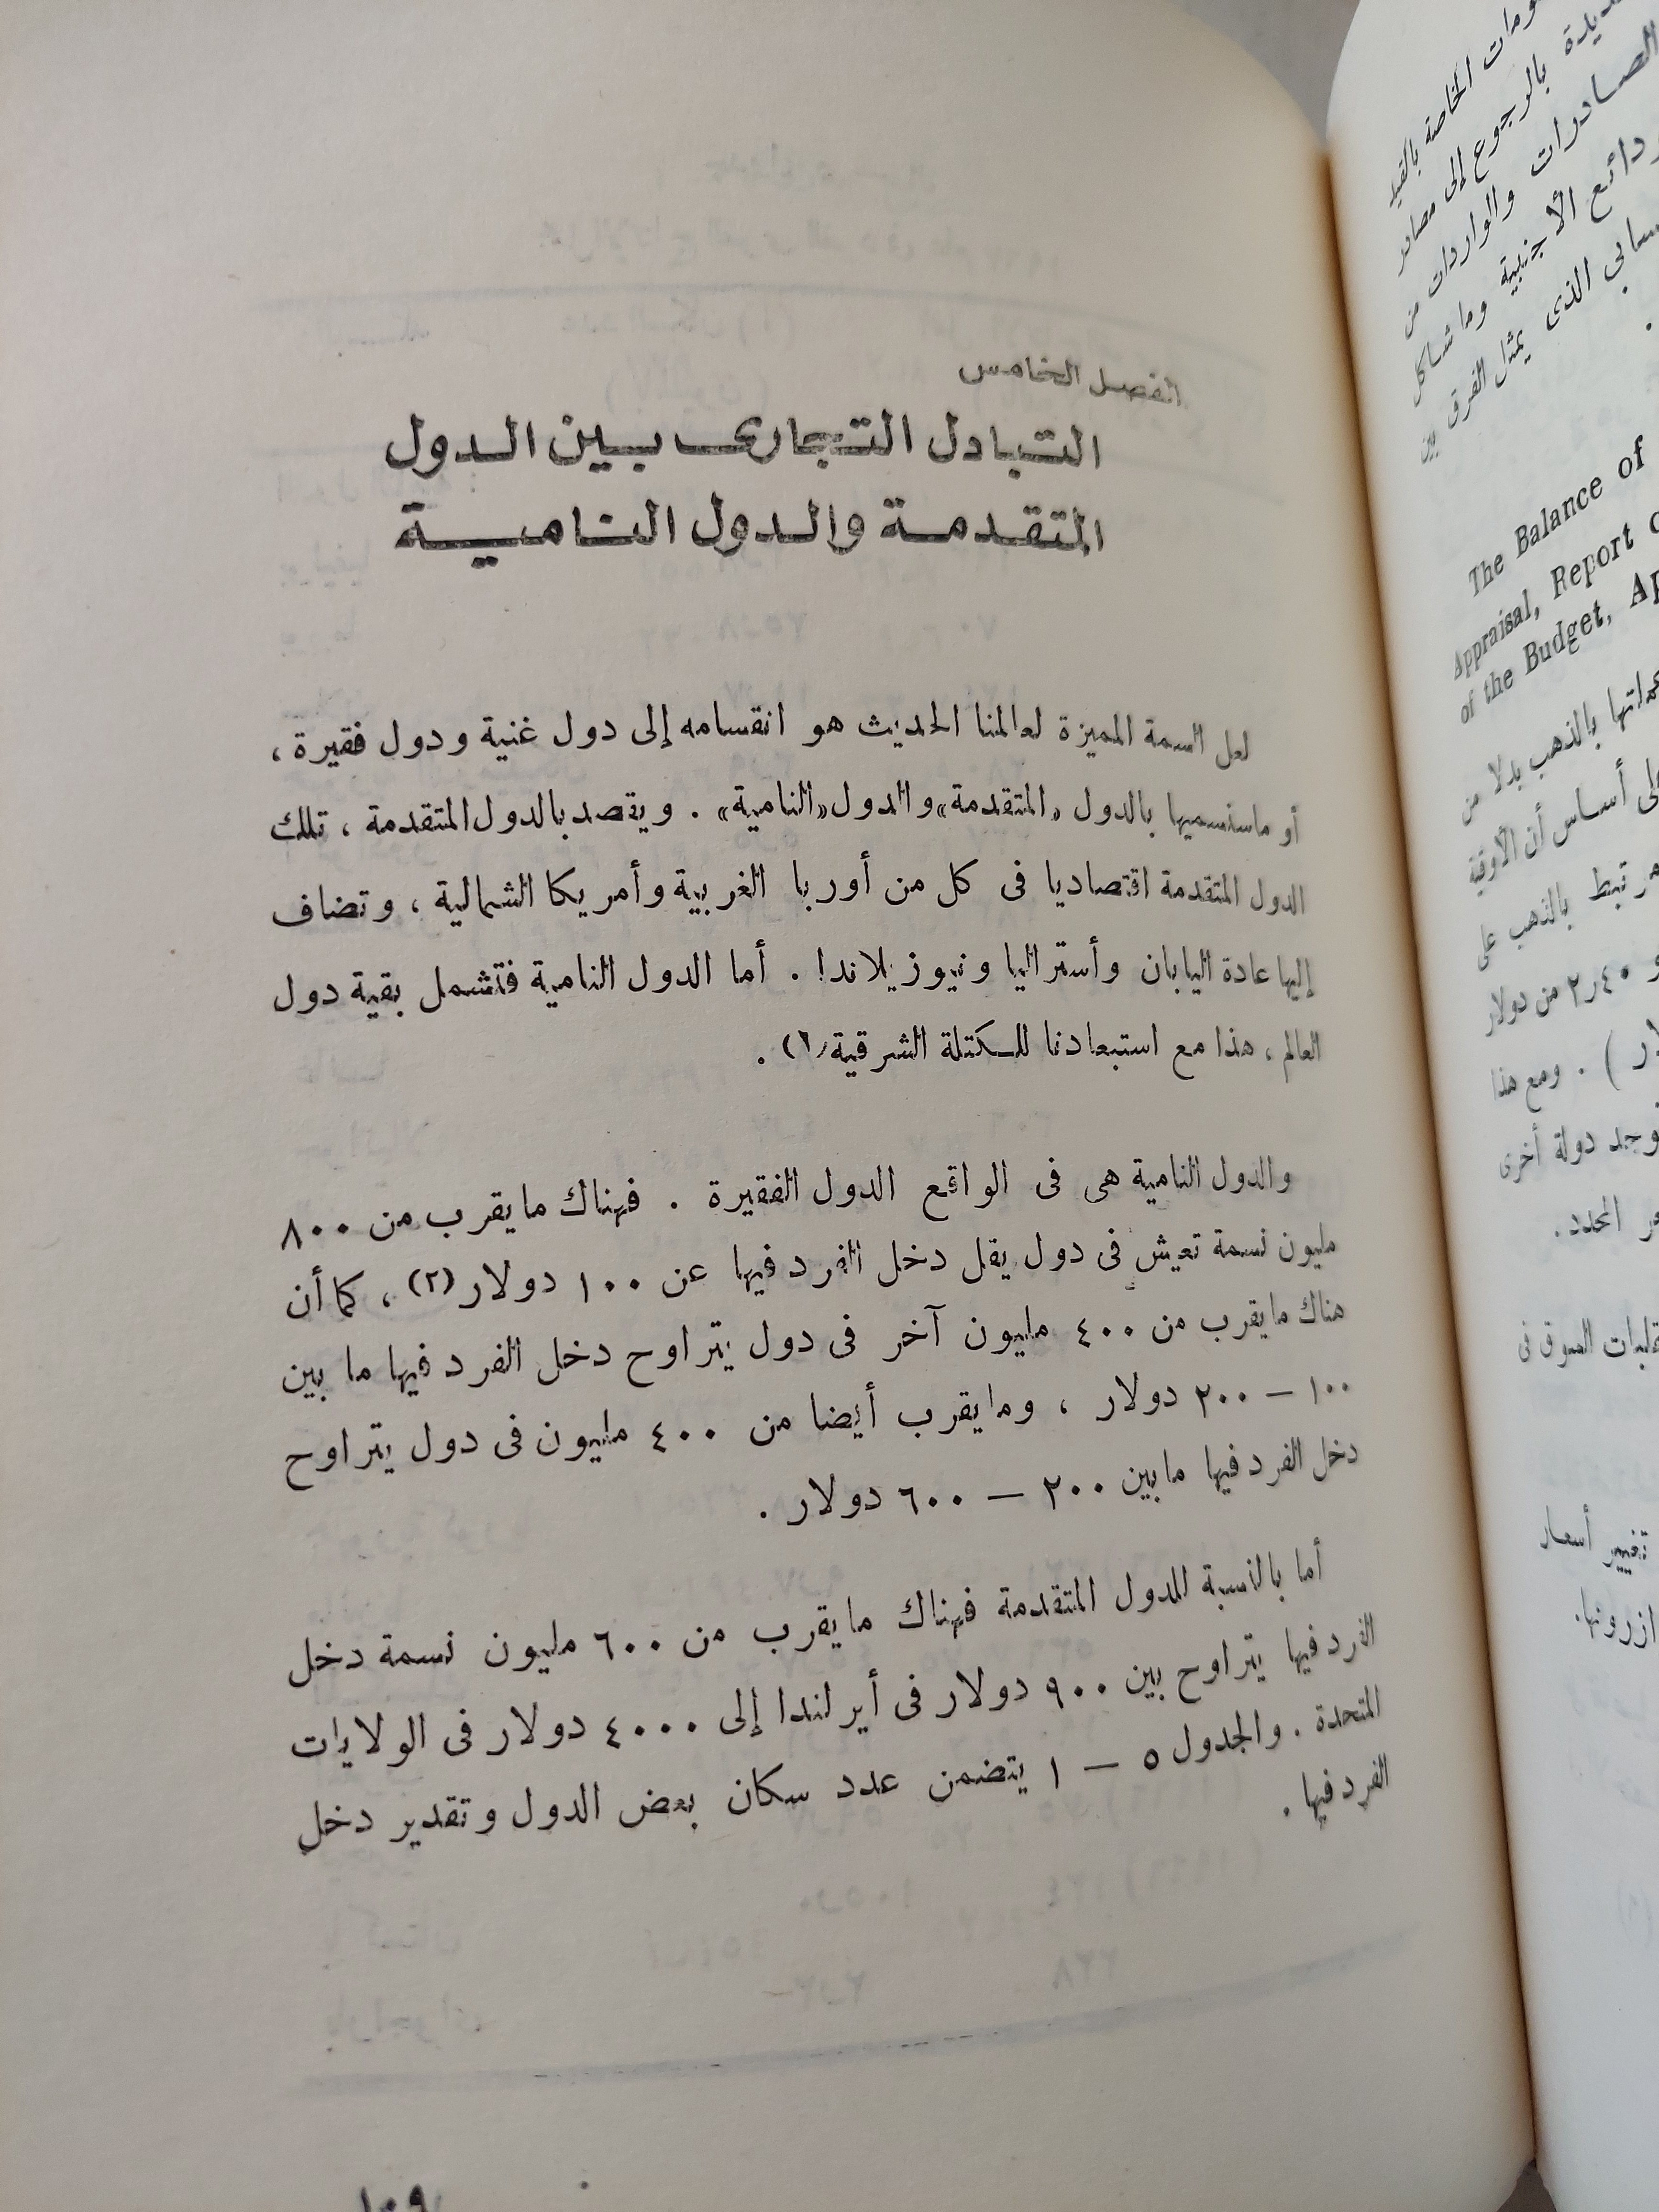 الفصل الخامس
التبادل التجارى بين الدول
المتقدمة والدول النامية
لعل السمة المميزة لعالمنا الحديث هو انقسامه إلى دول غنية ودول فقيرة ،
أو ماسنسميها بالدول «المتقدمة» والدول «النامية» . ويقصد بالدول المتقدمة ، تلك
الدول المتقدمة اقتصاديا فى كل من أوربا الغربية وأمريكا الشمالية ، وتضاف
إليها عادة اليابان وأستراليا ونيوزيلاندا . أما الدول النامية فتشمل بقية دول
العالم ، هذا مع استبعادنا للكتلة الشرقية(١) .
والدول النامية هى فى الواقع الدول الفقيرة . فهناك مايقرب من ٨٠٠
مليون نسمة تعيش فى دول يقل دخل الفرد فيها عن ١٠٠ دولار(٢) ، كما أن
هناك مايقرب من ٤٠٠ مليون آخر فى دول يتراوح دخل الفرد فيها ما بين
١٠٠ — ٢٠٠ دولار ، ومايقرب أيضا من ٤٠٠ مليون فى دول يتراوح
دخل الفرد فيها مابين ٢٠٠ — ٦٠٠ دولار .
أما بالنسبة للدول المتقدمة فهناك مايقرب من ٦٠٠ مليون نسمة دخل
الفرد فيها يتراوح بين ٩٠٠ دولار فى أيرلندا إلى ٤٠٠٠ دولار فى الولايات
المتحدة . والجدول ٥ — ١ يتضمن عدد سكان بعض الدول وتقدير دخل
الفرد فيها .
١٠٩
الخاصة بالقيد
بالرجوع إلى مصادر
الصادرات والواردات من
الأجنبية وما شاكل
الذى يمثل الفرق بين
The Balance of
Appraisal, Report
of the Budget,
بالذهب بدلا من
أساس أن الأوقية
مرتبط بالذهب على
٢٫٤٠ من دولار
) . ومع هذا
دولة أخرى
المحدد .
السوق فى
تغيير أسعار